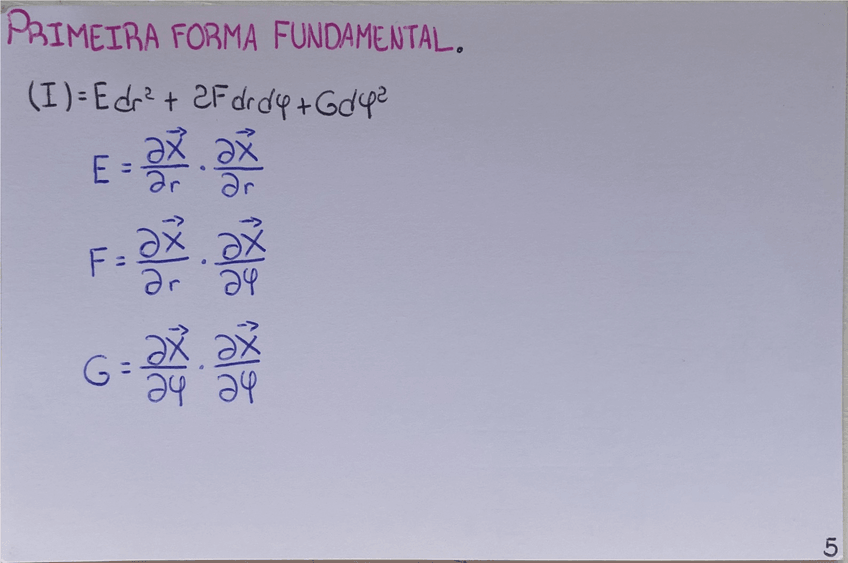 PRIMEIRA FORMA FUNDAMENTAL.
(I) = E dr² + 2F dr dφ + G dφ²
E = ∂X⃗/∂r · ∂X⃗/∂r
F = ∂X⃗/∂r · ∂X⃗/∂φ
G = ∂X⃗/∂φ · ∂X⃗/∂φ
5